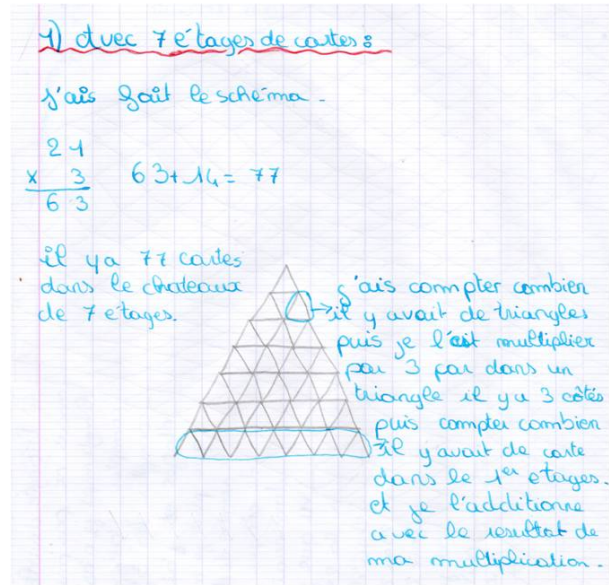 1) Avec 7 étages de cartes :
J'ais fait le schéma.
21
x 3 63+14= 77
63
il y a 77 cartes
dans le chateaux
de 7 etages.
j'ais compter combien
il y avait de triangles
puis je l'ait multiplier
par 3 par dans un
triangle il y a 3 côtés
puis compter combien
il y avait de carte
dans le 1er etages.
et je l'additionne
avec le resultat de
ma multiplication.